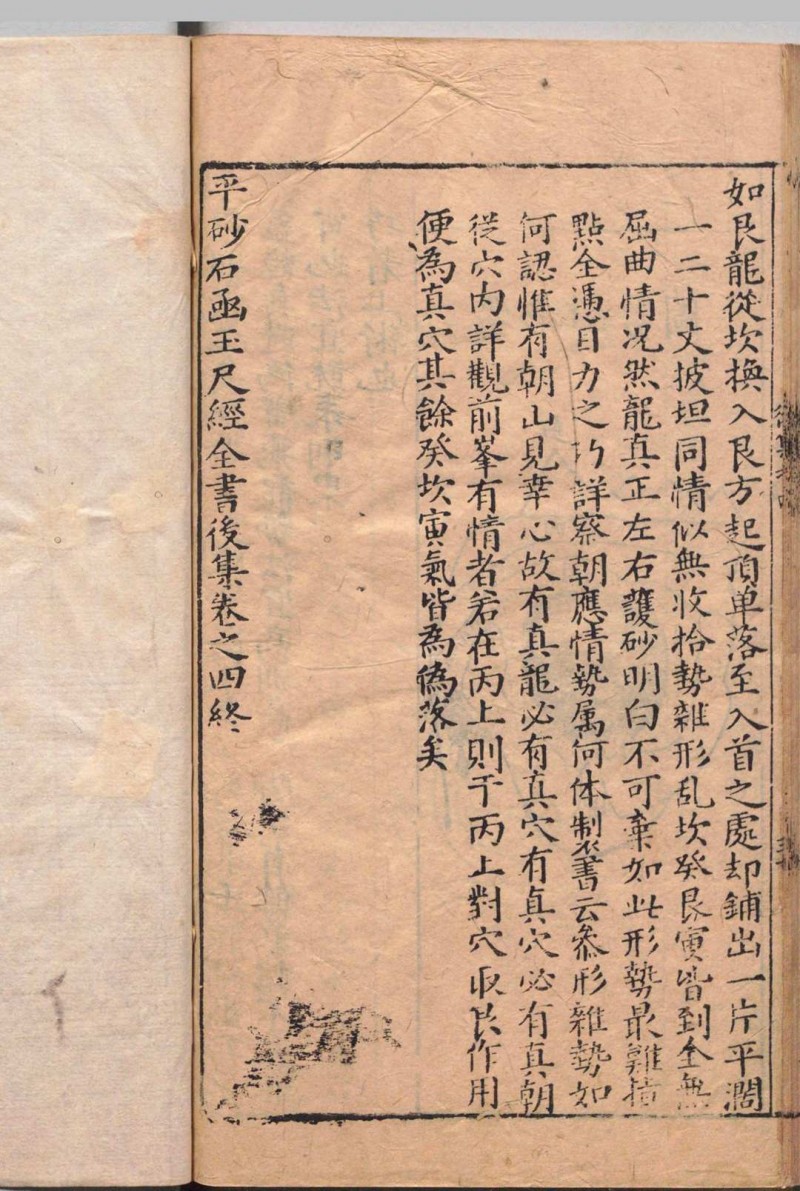 如艮龍從坎換入艮方起頂单落至入首之處却鋪出一片平濶
一二十丈披坦同情似無收拾勢雜形乱坎癸艮寅皆到全無
屈曲情况然龍真正左右護砂明白不可棄如此形勢最難
點全凴目力之巧詳察朝應情勢属何体制書云叅形雜勢如
何認惟有朝山見幸心故有真龍必有真穴有真穴必有真朝
從穴内詳觀前峯有情者若在丙上則于丙上對穴収艮作用
便為真穴其餘癸坎寅氣皆為偽落矣
平砂石函玉尺經全書後集卷之四終